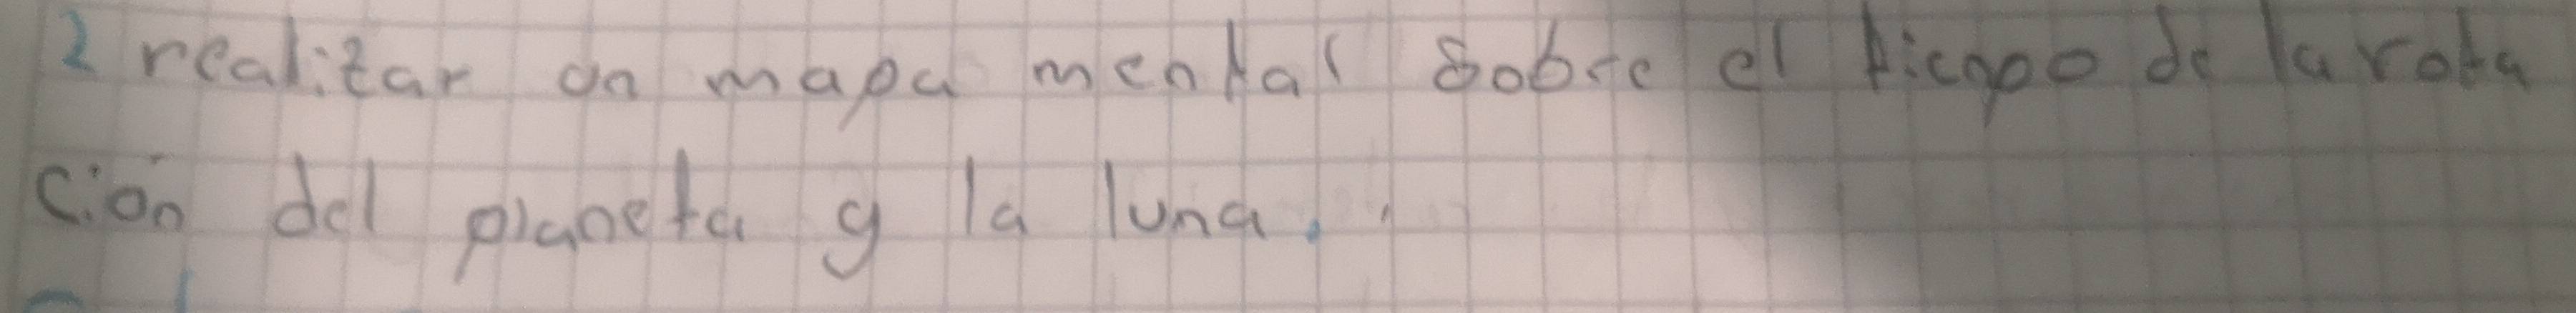 2 realizar on mapa mental sobre el tiempo de la rota
ción del planeta y la luna.